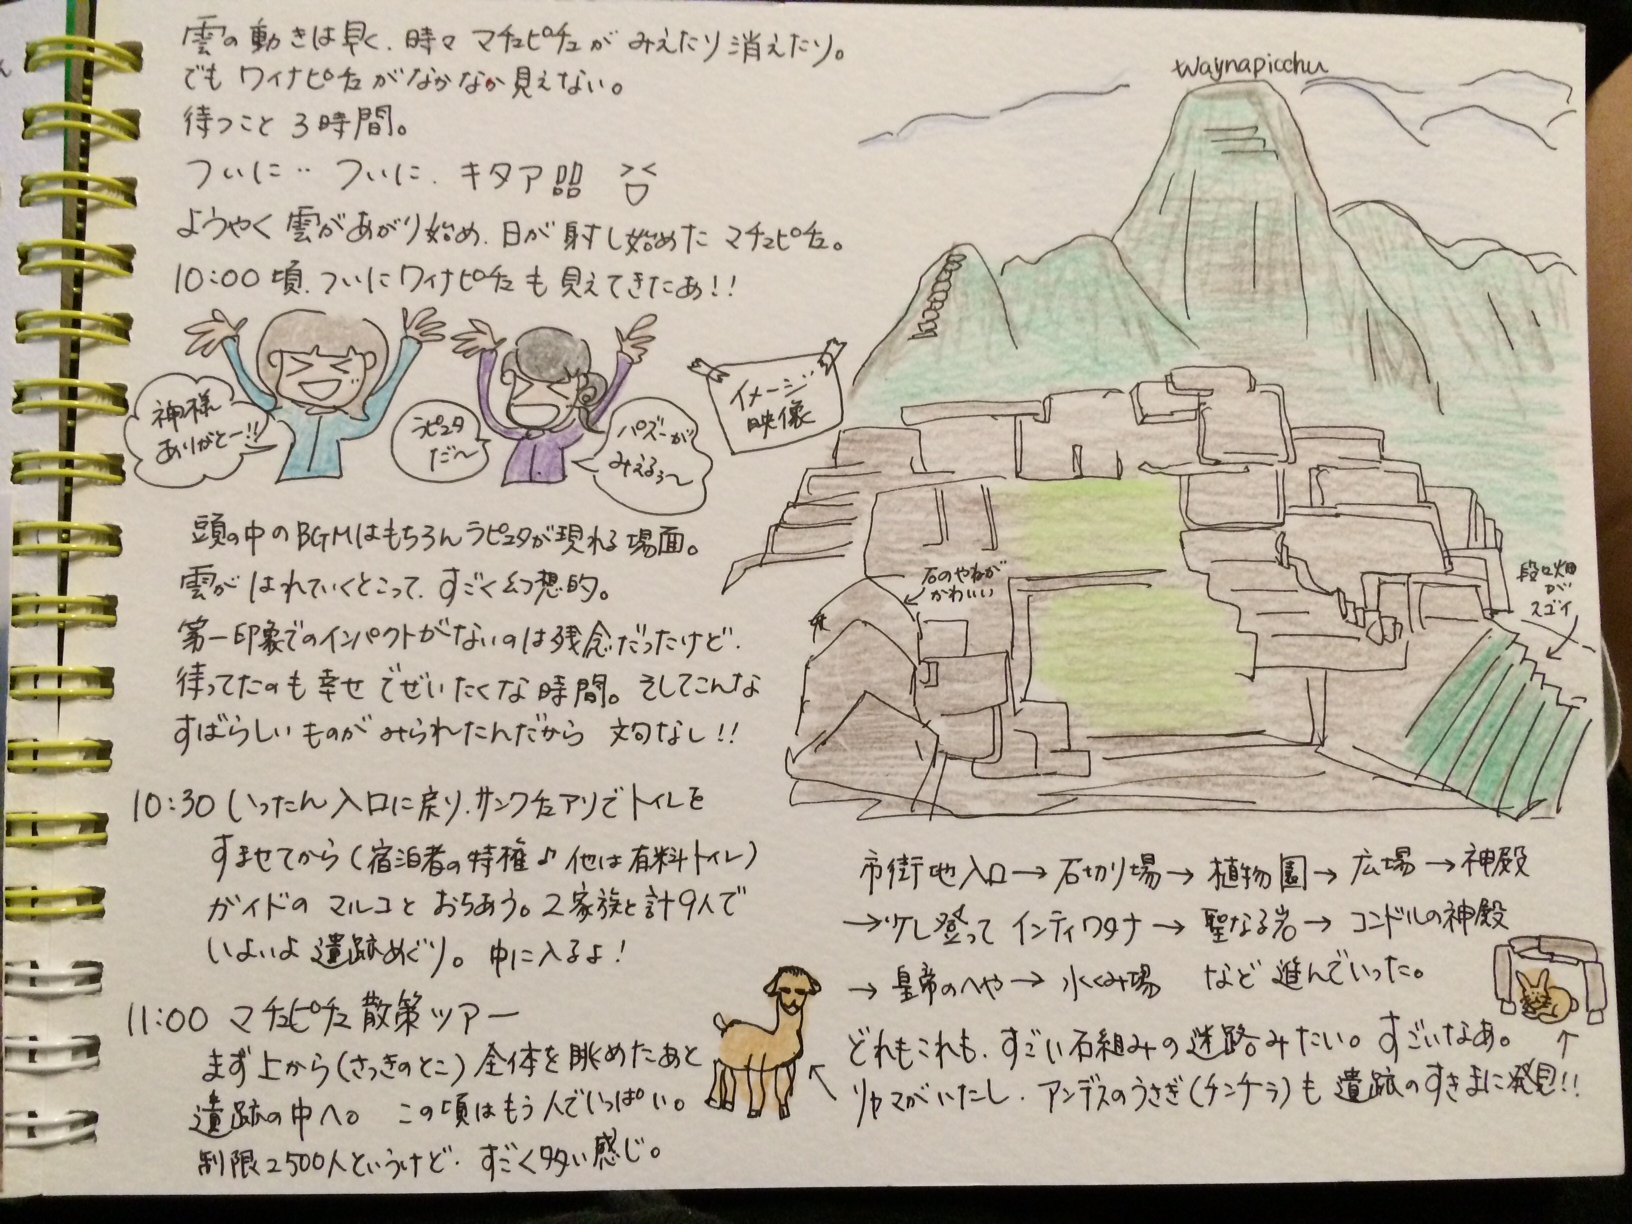 雲の動きは早く、時々マチュピチュがみえたり消えたり。
でもワイナピチュがなかなか見えない。
待つこと3時間。
ついに‥ついに、キタア!!!!
ようやく雲があがり始め、日が射し始めたマチュピチュ。
10:00頃、ついにワイナピチュも見えてきたあ!!
神様
ありがとー!!
ラピュタ
だ〜
パズーが
みえるぅ〜
イメージ
映像
頭の中のBGMはもちろんラピュタが現れる場面。
雲がはれていくとこって、すごく幻想的。
第一印象でのインパクトがないのは残念だったけど、
待ってたのも幸せでぜいたくな時間。そしてこんな
すばらしいものがみられたんだから文句なし!!
10:30 いったん入口に戻り、サンクチュアリでトイレを
すませてから(宿泊者の特権♪他は有料トイレ)
ガイドのマルコとおちあう。2家族と計9人で
いよいよ遺跡めぐり。中に入るよ!
11:00 マチュピチュ散策ツアー
まず上から(さっきのとこ)全体を眺めたあと
遺跡の中へ。この頃はもう人でいっぱい。
制限2500人というけど、すごく多い感じ。
Waynapicchu
石のやねが
かわいい
段々畑
が
スゴイ
市街地入口→石切り場→植物園→広場→神殿
→少し登ってインティワタナ→聖なる岩→コンドルの神殿
→皇帝のへや→水くみ場 など進んでいった。
どれもこれも、すごい石組みの迷路みたい。すごいなあ。
リャマがいたし、アンデスのうさぎ(チンチラ)も遺跡のすきまに発見!!